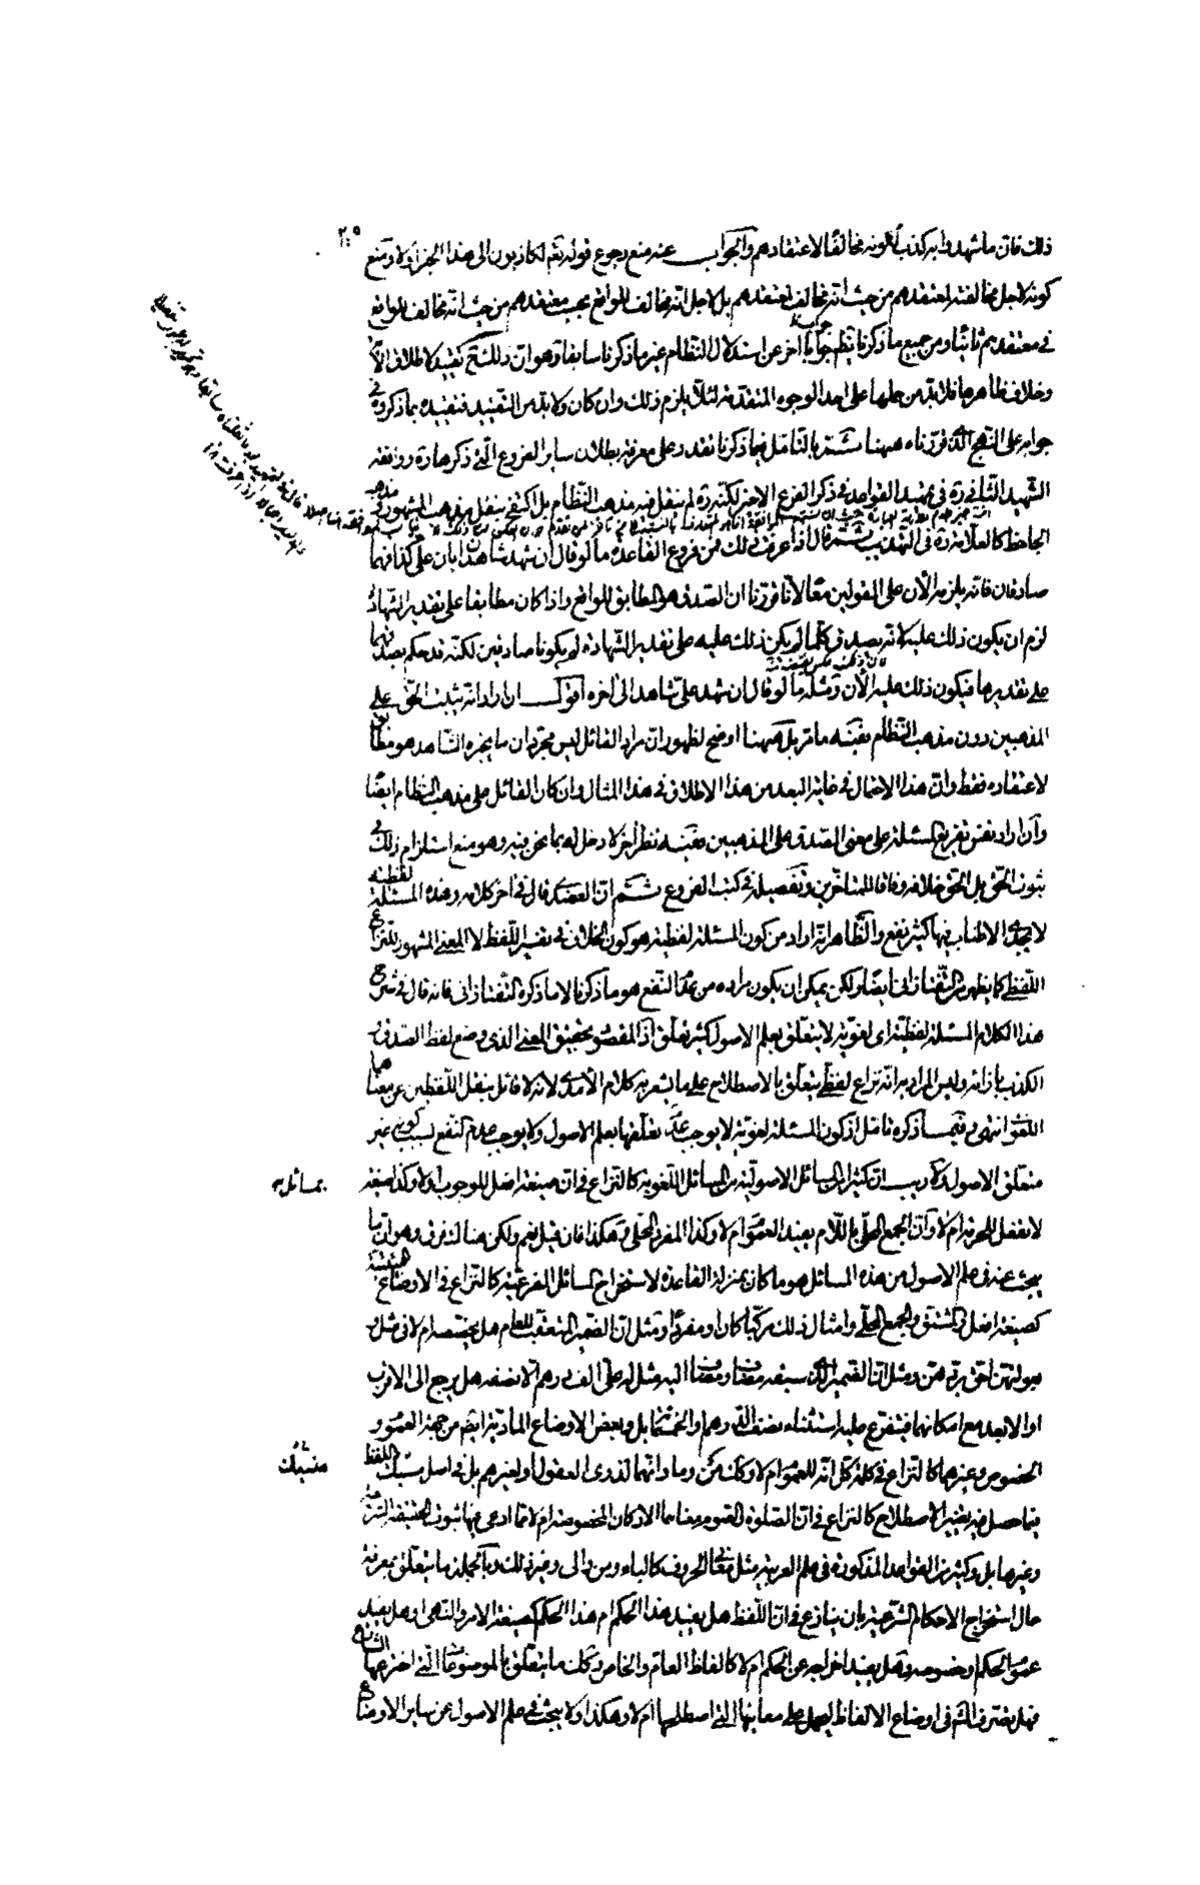 ٢٠٩
ذلك فان ما شهدوا به كذب لكونه مخالفا لاعتقادهم والجواب عنه منع رجوع قوله تعم لكاذبون الى هذا الخبر اولا ومنع
كونه لاجل مخالفته لمعتقدهم من حيث انه مخالف لمعتقدهم بل لاجل انه مخالف للواقع بحسب معتقدهم من حيث انه مخالف للواقع
في معتقدهم ثانيا ومن جميع ما ذكرنا يظهر جوابا اخر عن استدلال النظام غير ما ذكرنا سابقا وهو ان ذلك تقييد لاطلاق
وخلاف ظاهرها فلا بد من حملها على احد الوجوه المتقدمة لئلا يلزم ذلك وان كان ولا بد من التقييد فنقيده بما ذكروه في
جوابه على النهج الذي قررناه ههنا ثم بالتامل فيما ذكرنا تقدر على معرفة بطلان ساير الفروع التي ذكرها ره ووافقه
الشهيد الثاني ره في تمهيد القواعد في ذكر الفرع الاخير لكنه ره لم ينقل فيه مذهب النظام بل اكتفى بنقل مذهب المشهور ومذهب
الجاحظ كالعلامة ره في التهذيب ثم قال اذا عرفت ذلك فمن فروع القاعدة ما لو قال ان شهد شاهدان بان علي كذا فهما
صادقان فانه يلزمه الان على القولين معا لانا قررنا ان الصدق هو المطابق للواقع واذا كان مطابقا على تقدير الشهادة
لزم ان يكون ذلك عليه لانه يصدق كلما لم يكن ذلك عليه على تقدير الشهادة لم يكونا صادقين لكنه قد حكم بصدقهما
على تقديرها فيكون ذلك عليه الان ومثله ما لو قال ان شهد على شاهد الى اخره اقول ان اراد انه يثبت الحق على
المذهبين دون مذهب النظام ففيه ما مر بل ههنا اوضح لظهور ان مراد القائل ليس مجرد ان ما يخبره الشاهد هو مطابق
لاعتقاده فقط وان هذا الاحتمال في غاية البعد من هذا الاطلاق في هذا المثال وان كان القائل على مذهب النظام ايضا
وان اراد نفس تفريع المسئلة على معنى الصدق على المذهبين ففيه نظر اخر لا دخل له بما نحن فيه وهو منع استلزام ذلك في
ثبوت الحق بل الحق خلافه وفاقا للمتاخرين وتفصيله في كتب الفروع ثم ان العضدي قال في اخر كلامه وهذه المسئلة لفظية
لا يجدي الاطناب فيها كثير نفع والظاهر انه اراد من كون المسئلة لفظية هو كون الخلاف في تفسير اللفظ لا المعنى المشهور للنزاع
اللفظي كما يظهر من التفتازاني ايضا ولكن يمكن ان يكون مراده من عدم النفع هو ما ذكرنا لا ما ذكره التفتازاني فانه قال في شرح
هذا الكلام المسئلة لفظية اي لغوية لا يتعلق بعلم الاصول كثير تعلق اذ المقصود تحقيق المعنى الذي وضع لفظ الصدق و
الكذب بازائه وليس المراد به انه نزاع لفظي يتعلق بالاصطلاح على ما يشعر به كلام الامدي لانه لا قائل بنقل اللفظين عن معناهما
اللغوي انتهى وفيما ذكره تامل اذ كون المسئلة لغوية لا يوجب عدم تعلقها بعلم الاصول ولا يوجب عدم النفع لسبب كونه غير
متعلق الاصول ولا ريب ان كثيرا من المسائل الاصولية من المسائل اللغوية كالنزاع في ان صيغة افعل للوجوب اولا وكذا صيغة
لا تفعل للحرمة ام لا وان الجمع المحلى باللام يفيد العموم ام لا وكذا المفرد المحلى وهكذا فان قيل نعم ولكن هنالك فرق وهو ان ما
يبحث عنه في علم الاصول من هذه المسائل هو ما كان بمنزلة القاعدة لاستخراج المسائل الفرعية كالنزاع في الاوضاع الهيئتية
كصيغة افعل والمشتق والجمع المحلى وامثال ذلك مركبا كان او مفردا ومثل ان الضمير المتعقب للعام هل يخصصه ام لا في مثل و
بعولتهن احق بردهن ومثل ان الضمير الذي سبقه مضاف ومضاف اليه مثل له علي الف درهم الا نصفه هل يرجع الى الاقرب
او الابعد مع امكانهما فيتفرع عليه استثناء نصف الدرهم او الخمسمائة بل وبعض الاوضاع المادية ايضا من جهة العموم و
الخصوص وغيرهما كالنزاع في كلمة كل انه للعموم ام لا وكذا من وما وانهما لذوي العقول او لغيرهم بل في اصل اللفظ
فيما حصل فيه تغيير الاصطلاح كالنزاع في ان الصلوة والصوم معناهما الاركان المخصوصة ام لا مما ادعى فيها ثبوت الحقيقة الشرعية
وغيرها بل وكثير من القواعد المذكورة في علم العربية مثل معاني الحروف كالباء ومن والى وغير ذلك وبالجملة ما يتعلق بمعرفة
حال استخراج الاحكام الشرعية بان ينازع في ان اللفظ هل يفيد هذا الحكم ام هذا الحكم كصيغة الامر والنهي او هل يفيد
عموم الحكم او خصوصه وهل يفيد اخراجه عن الحكم ام لا كالفاظ العام والخاص وكك ما يتعلق بالموضوعات التي اخترعها الشارع
فهل يعتبر في اوضاع الالفاظ معانيها التي اصطلحها ام لا وهكذا ولا يبحث في علم الاصول عن ساير الاوضاع
بمسائل